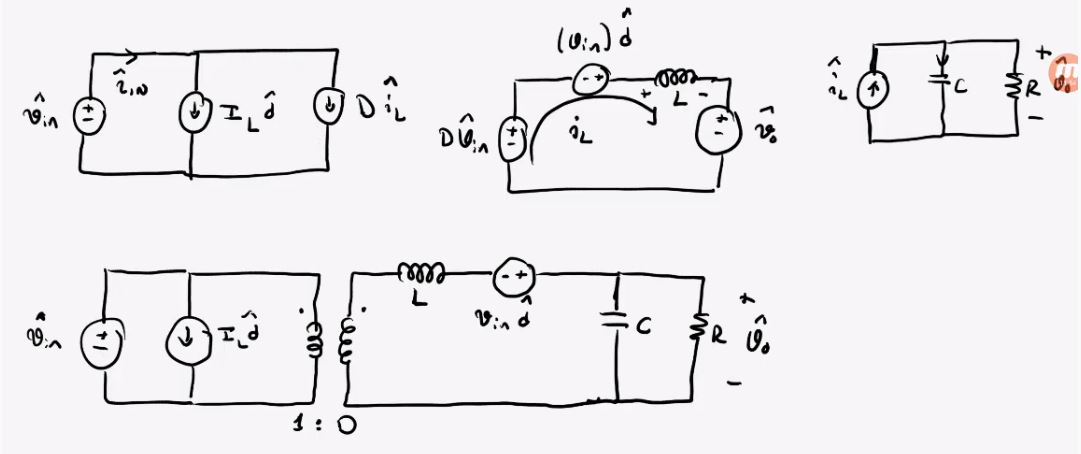 v̂in
î IN
I_L d̂
D î_L
(v_in) d̂
D v̂in
i_L
+ L -
v̂o
î_L
C
R
+
v̂o
-
v̂in
I_L d̂
1 : D
L
v_in d̂
C
R
+
v̂o
-